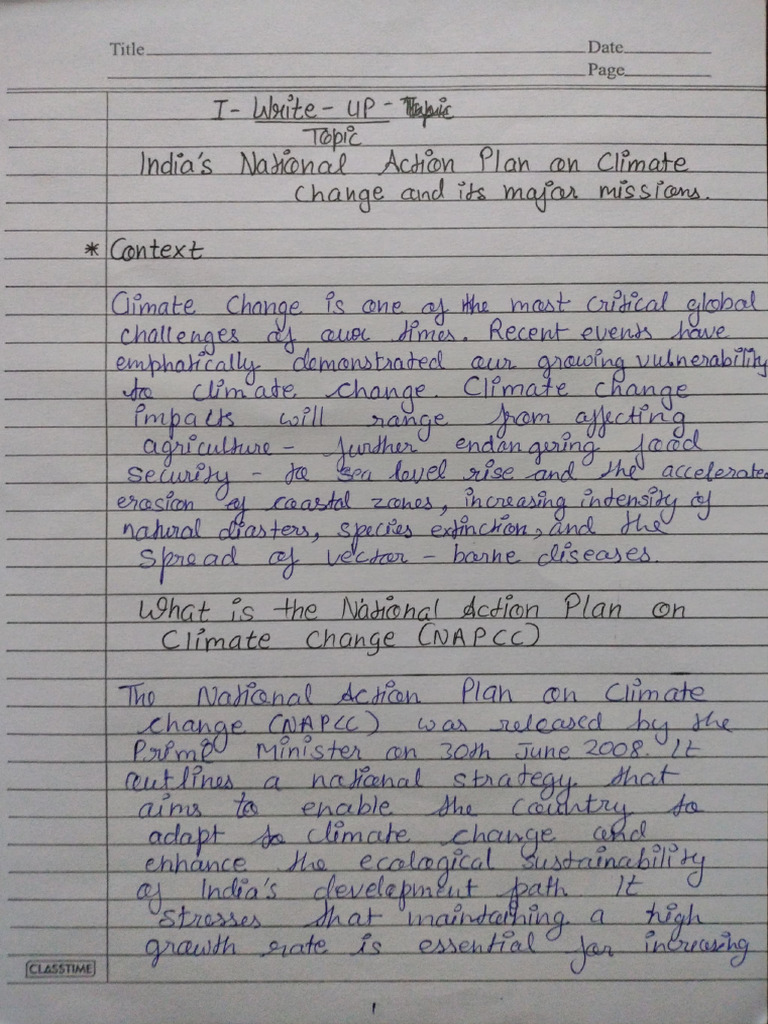 Title
Date
Page
I - Write - UP - Topic
Topic
India's National Action Plan on Climate
Change and its major missions.
* Context
Climate Change is one of the most critical global
challenges of our times. Recent events have
emphatically demonstrated our growing vulnerability
to climate change. Climate change
impacts will range from affecting
agriculture - further endangering food
security - to sea level rise and the accelerated
erosion of coastal zones, increasing intensity of
natural diasters, species extinction, and the
spread of vector - borne diseases.
What is the National Action Plan on
Climate Change (NAPCC)
The National Action Plan on Climate
change (NAPCC) was released by the
Prime Minister on 30th June 2008. It
outlines a national strategy that
aims to enable the country to
adapt to climate change and
enhance the ecological sustainability
of India's development path It
stresses that maintaining a high
growth rate is essential for increasing
CLASSTIME
1